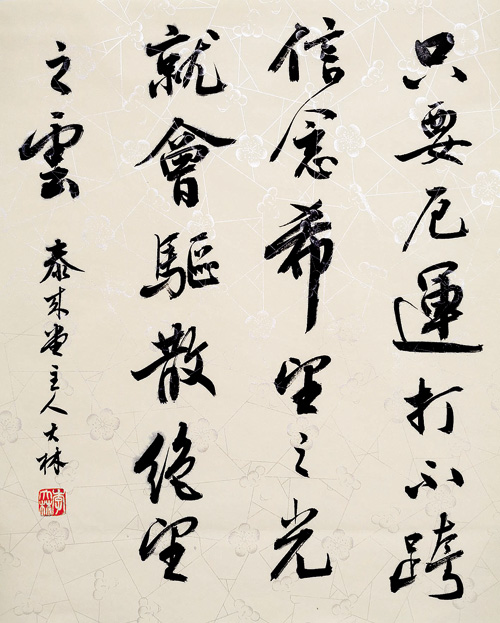 只要厄運打不跨
信念希望之光
就會驅散絕望
之雲
泰來堂主人大林
李大林